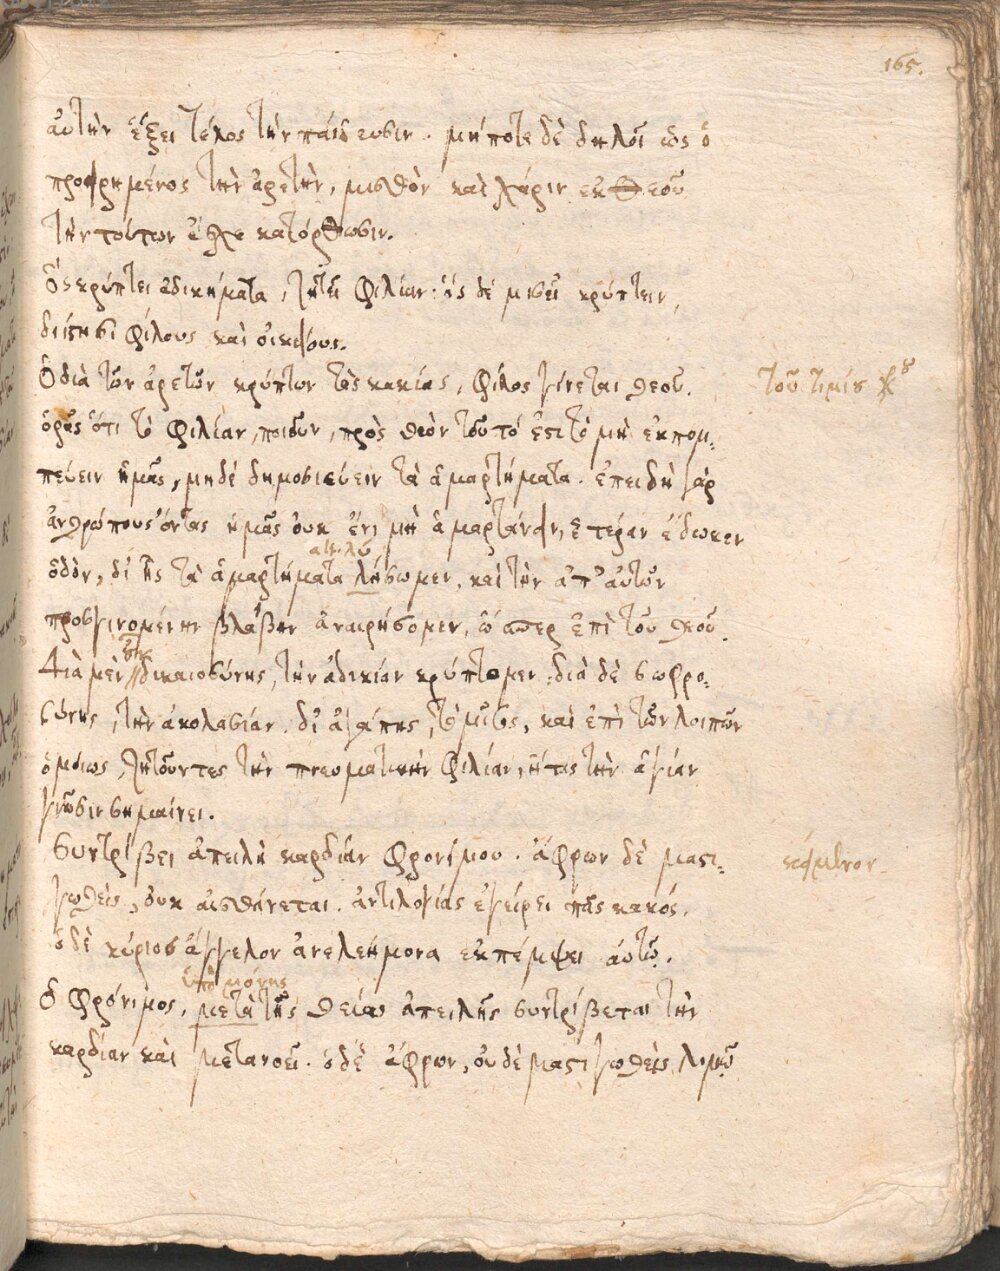 165.
αὐτὴν ἕξει τέλος τὴν παίδευσιν. μήποτε δὲ δηλοῖ ὡς ὁ
προῃρημένος τὴν ἀρετὴν, μισθὸν καὶ χάριν ἐκ θεοῦ
τὴν τούτων ἔχε κατόρθωσιν.
Ὃς κρύπτει ἀδικήματα, ζητεῖ φιλίαν· ὃς δὲ μισεῖ κρύπτειν,
διίστησι φίλους καὶ οἰκείους.
Ὁ διὰ τῶν ἀρετῶν κρύπτων τὰς κακίας, φίλος γίνεται θεοῦ. τοῦ τιμίου
ὁρᾷς ὅτι τὸ φιλίαν, ποιοῦν, πρὸς θεὸν τοῦτό ἐστι τὸ μὴ ἐκπομ-
πεύειν ἡμᾶς, μηδὲ δημοσιεύειν τὰ ἁμαρτήματα. ἐπειδὴ γὰρ
ἀνθρώπους ὄντας ἡμᾶς οὐκ ἔνι μὴ ἁμαρτάνειν, ἑτέραν ἔδωκεν
ὁδὸν, δι' ἧς τὰ ἁμαρτήματα λήσωμεν, καὶ τὴν ἀπ' αὐτῶν
προσγινομένην βλάβην ἀναιρήσομεν, ὥσπερ ἐπὶ τοῦ θεοῦ.
Διὰ μὲν δικαιοσύνης, τὴν ἀδικίαν κρύπτομεν. διὰ δὲ σωφρο-
σύνης, τὴν ἀκολασίαν. δι' ἀγάπης, τὸ μῖσος, καὶ ἐπὶ τῶν λοιπῶν
ὁμοίως, ζητοῦντες τὴν πνευματικὴν φιλίαν, ἥτις τὴν ἁγίαν
γνῶσιν σημαίνει.
Συντρίβει ἀπειλὴ καρδίαν φρονίμου. ἄφρων δὲ μαστι- κείμενον.
γωθεὶς, οὐκ αἰσθάνεται. ἀντιλογίας ἐγείρει πᾶς κακός.
ὁ δὲ κύριος ἄγγελον ἀνελεήμονα ἐκπέμψει αὐτῷ.
ὑπὸ μόνης
ὁ φρόνιμος, μετὰ τῆς θείας ἀπειλῆς συντρίβεται τὴν
καρδίαν καὶ μετανοεῖ. ὁ δὲ ἄφρων, οὐδὲ μαστιγωθεὶς λιμῷ